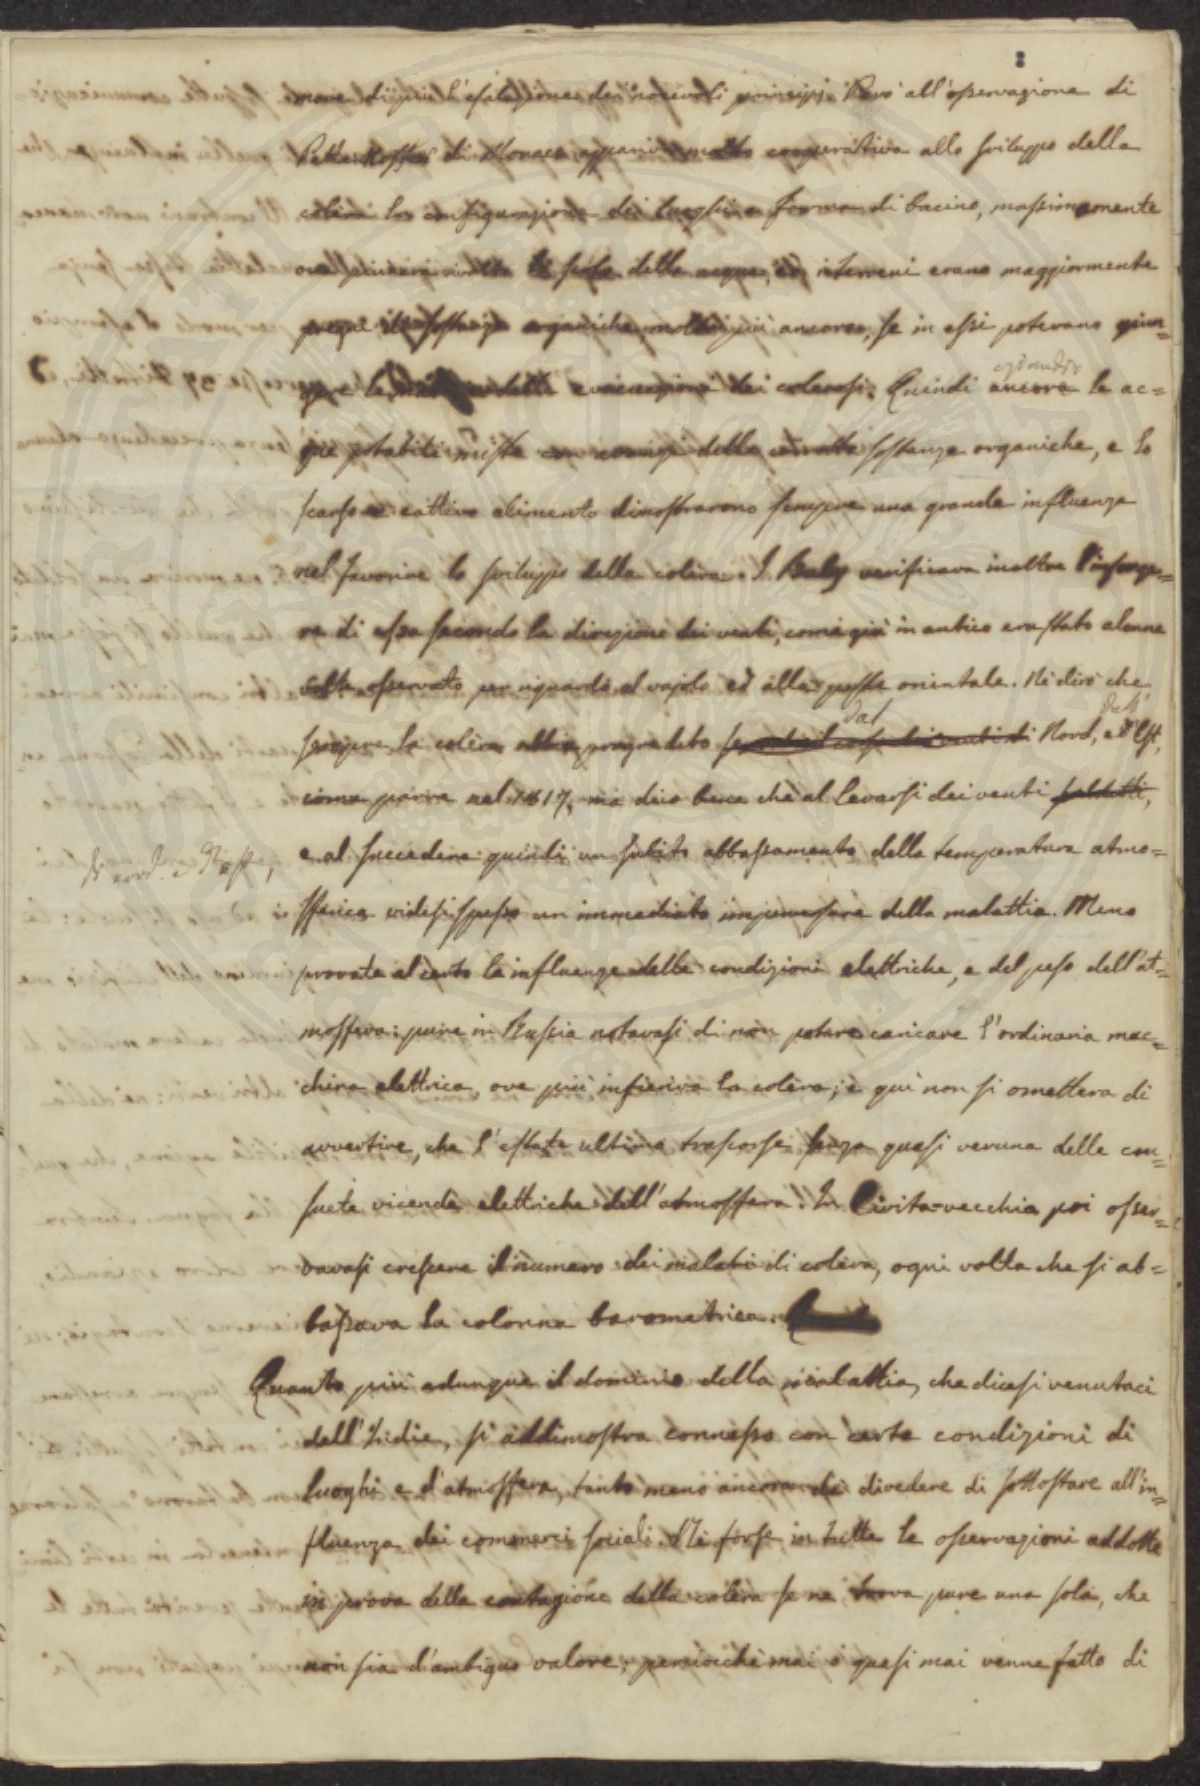 move di più l'esalazione dei nocevoli principj. Però all'osservazione di
Pettenkoffer di Monaco appariva molto cooperativa allo sviluppo della
colera la configurazione dei luoghi a forma di bacino, massimamente
della acque, ed i terreni erano maggiormente
pregni di sostanze organiche, molto più ancora, se in essi potevano giun=
gere le delle evacuazioni dei colerosi. Quindi ancora le ac=
eziandio
que potabili miste con avanzi delle corrotte sostanze organiche, e lo
scarso e cattivo alimento dimostrarono sempre una grande influenza
nel favorire lo sviluppo della colera. I. Baly verificava inoltre l'insorge=
re di essa secondo la direzione dei venti, come già in antico era stato alcuna
volta osservato per riguardo al vajolo ed alla peste orientale. Nè dirò che
sempre la colera abbia progredito Nord, e d'Est,
dal
dall'
come parve nel 1817, ma dico bene che al levarsi dei venti suddetti,
di nord. e d'est,
e al succedere quindi un subito abbassamento della temperatura atmo=
sferica videsi spesso un immediato imperversare della malattia. Meno
provate al certo le influenze delle condizioni elettriche, e del peso dell'at=
mosfera: pure in Russia notavasi di non potere caricare l'ordinaria mac=
china elettrica, ove più infieriva la colera; e qui non si ometterà di
avvertire, che l'estate ultima trascorse senza quasi veruna delle con=
suete vicende elettriche dell'atmosfera. In Civita=vecchia poi osser=
vavasi crescere il numero dei malati di colera, ogni volta che si ab=
bassava la colonna barometrica.
Quanto più adunque il dominio della malattia, che dicesi venutaci
dall'Indie, si addimostra connesso con certe condizioni di
luoghi e d'atmosfera, tanto meno ancora dà divedere di sottostare all'in=
fluenza dei commerci sociali. Nè forse in tutte le osservazioni addotte
in prova della contagione della colera se ne trova pure una sola, che
non sia d'ambiguo valore; perciocchè mai o quasi mai venne fatto di